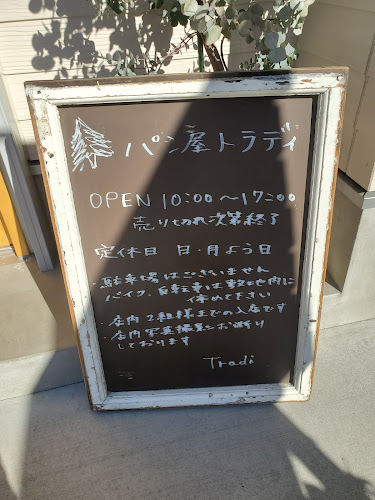 パン屋トラディ
OPEN 10:00〜17:00
売り切れ次第終了
定休日 日・月よう日
・駐車場はございません
バイク、自転車は敷地内に
休めて下さい
・店内2組様までの入店です
・店内写真撮影をお断り
しております
Tradi